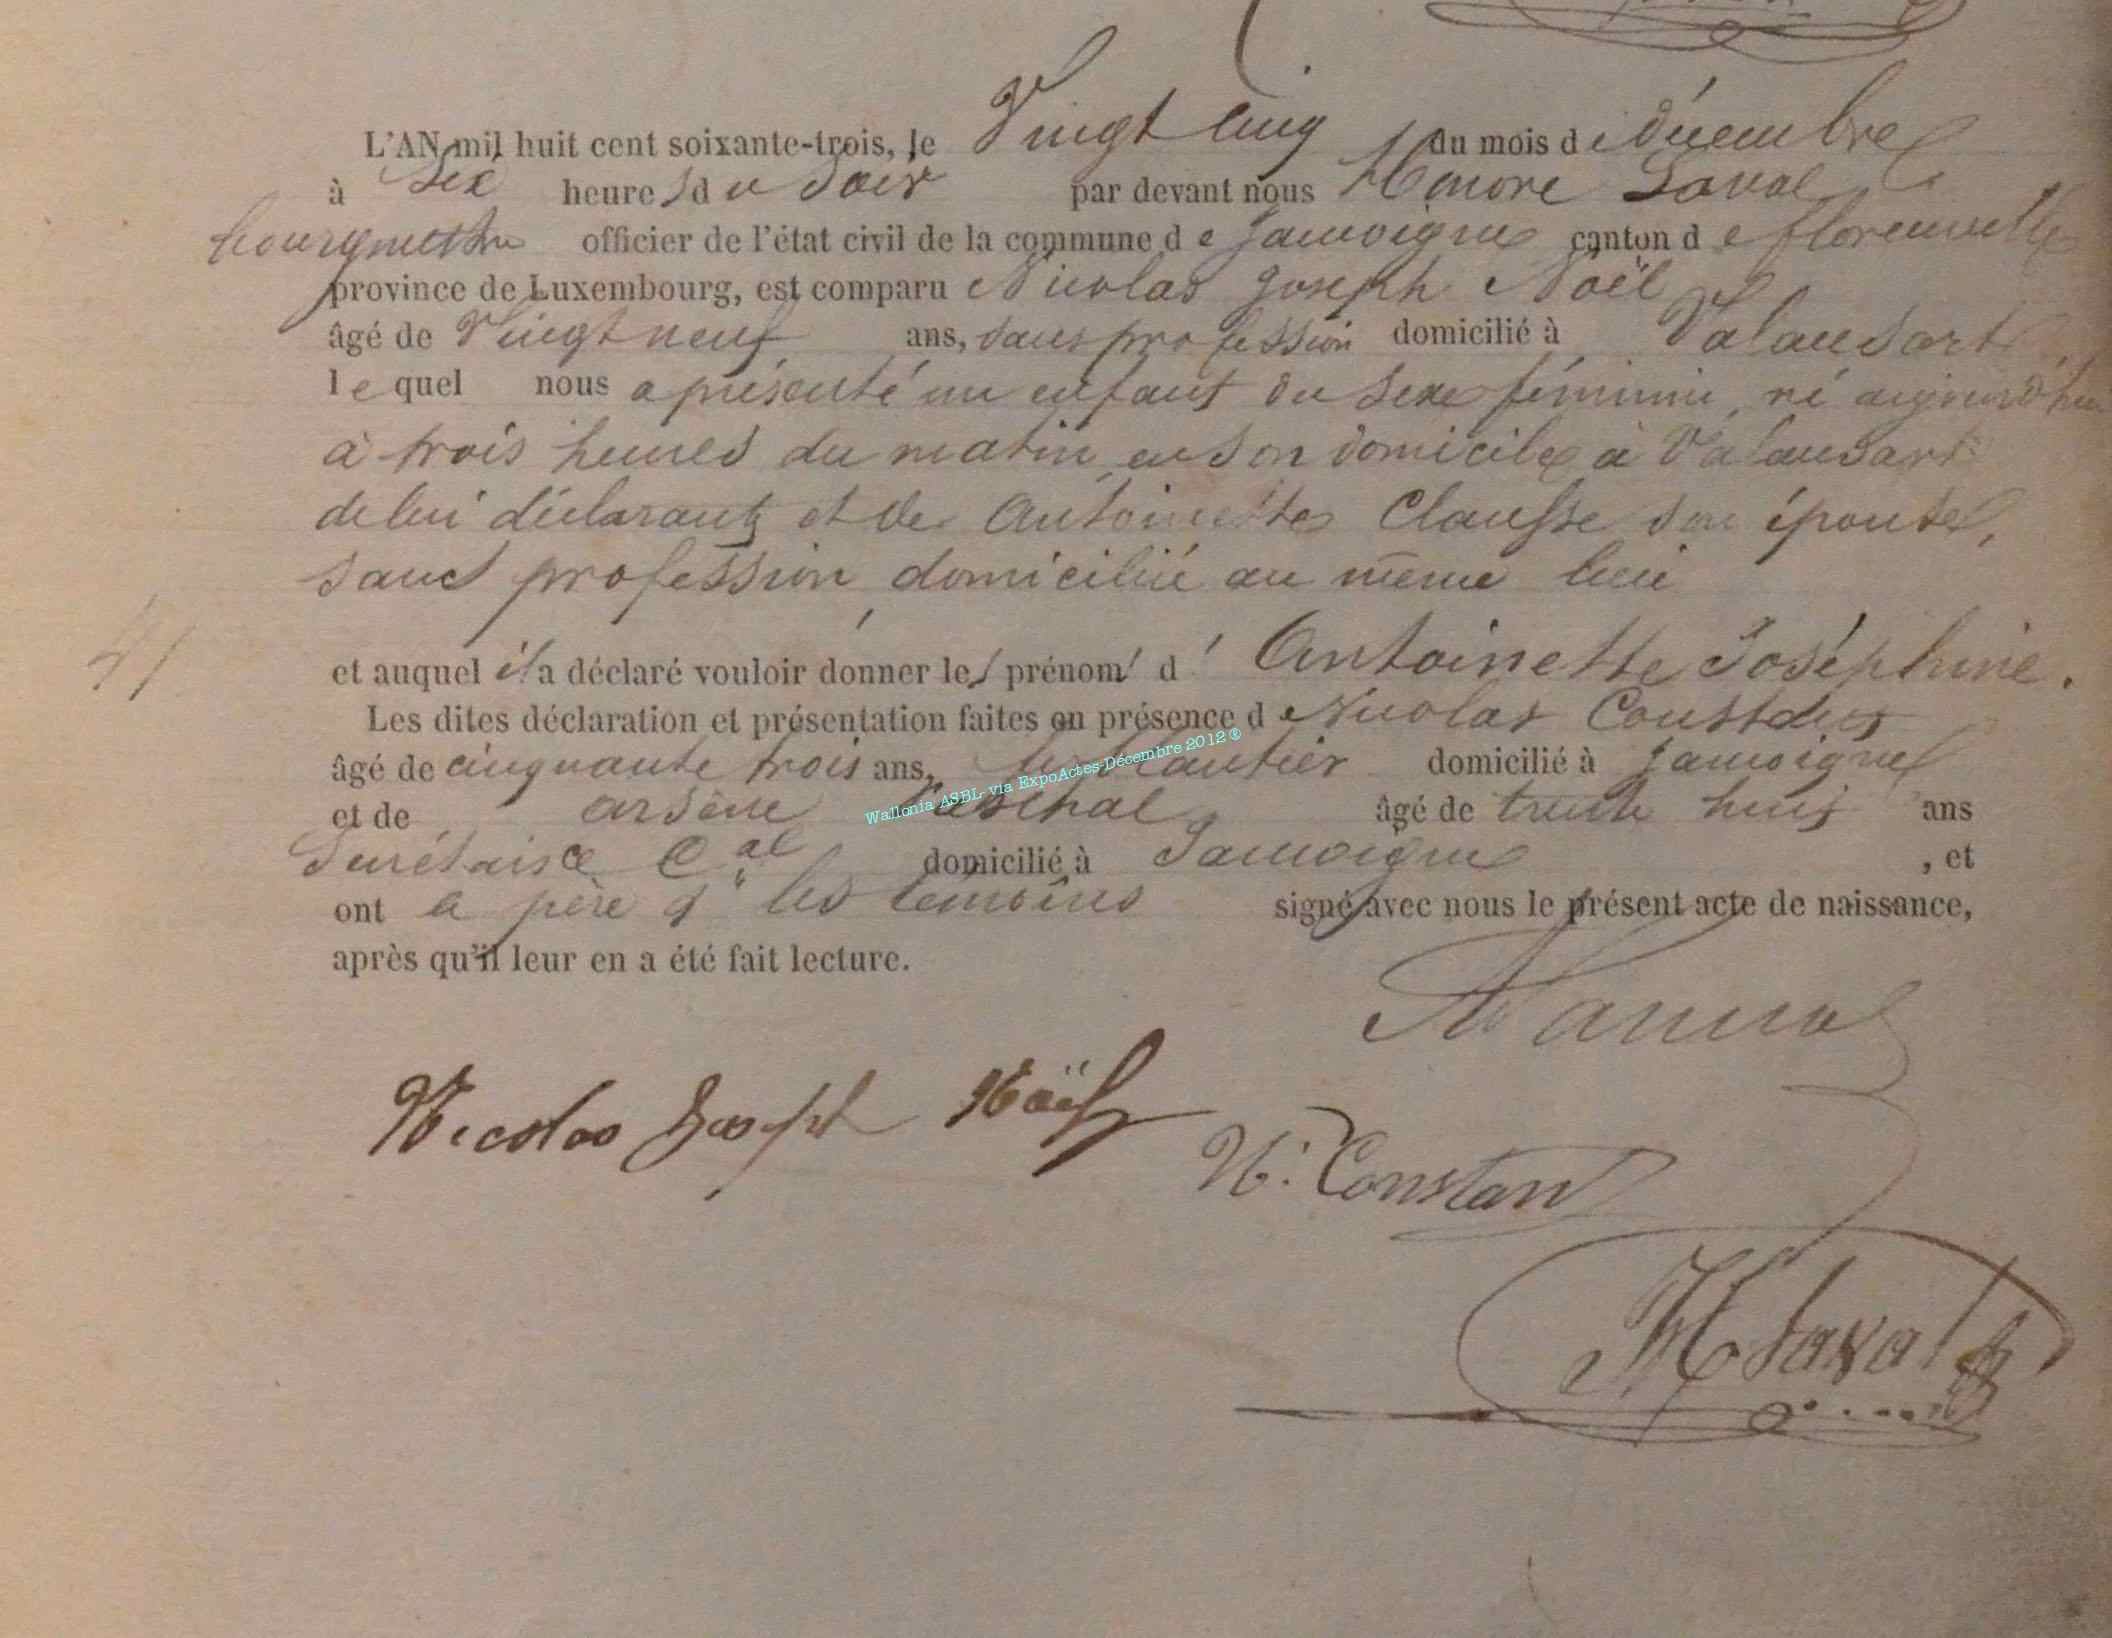 L'AN mil huit cent soixante-trois, le Vingt cinq du mois de décembre
à Six heures du Soir par devant nous Honoré Laval
bourgmestre officier de l'état civil de la commune de Jamoigne canton de florenville
province de Luxembourg, est comparu Nicolas Joseph Noël
âgé de Vingt neuf ans, sans profession domicilié à Valansart
lequel nous a présenté un enfant du sexe féminin, né aujourd'hui
à trois heures du matin en son domicile à Valansart
de lui déclarant et de Antoinette Clausse son épouse,
sans profession, domiciliée au même lieu
41
et auquel il a déclaré vouloir donner les prénoms d' Antoinette Joséphine.
Les dites déclaration et présentation faites en présence de Nicolas
âgé de cinquante trois ans, domicilié à Jamoigne
et de arsène âgé de trente huit ans
Secrétaire Cal domicilié à Jamoigne , et
ont le père & les témoins signé avec nous le présent acte de naissance,
après qu'il leur en a été fait lecture.
Wallonia ASBL via ExpoActes-Décembre 2012 ®
Nicolas Joseph Noël
N. Constant
H Laval